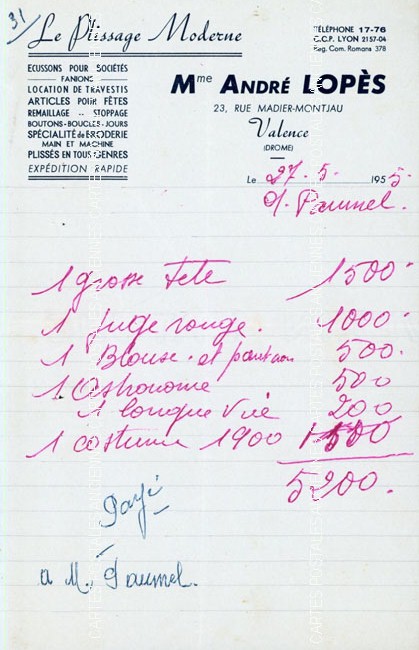 31
Le Plissage Moderne
TÉLÉPHONE 17-76
C.C.P. LYON 2157-04
Reg. Com. Romans 378
ECUSSONS POUR SOCIÉTÉS
FANIONS
LOCATION DE TRAVESTIS
ARTICLES POUR FÊTES
REMAILLAGE - STOPPAGE
BOUTONS-BOUCLES-JOURS
SPÉCIALITÉ de BRODERIE
MAIN ET MACHINE
PLISSÉS EN TOUS GENRES
EXPÉDITION RAPIDE
Mme ANDRÉ LOPÈS
23, RUE MADIER-MONTJAU
Valence
(DROME)
Le 27. 5. 1955.
Paumel.
1 grosse tete 1500
1 juge rouge. 1000
1 Blouse. et pantaon 500.
1 Astronome 500
1 longue vue 200
1 costume 1900 1500
5200.
Payé
a M. Paumel.